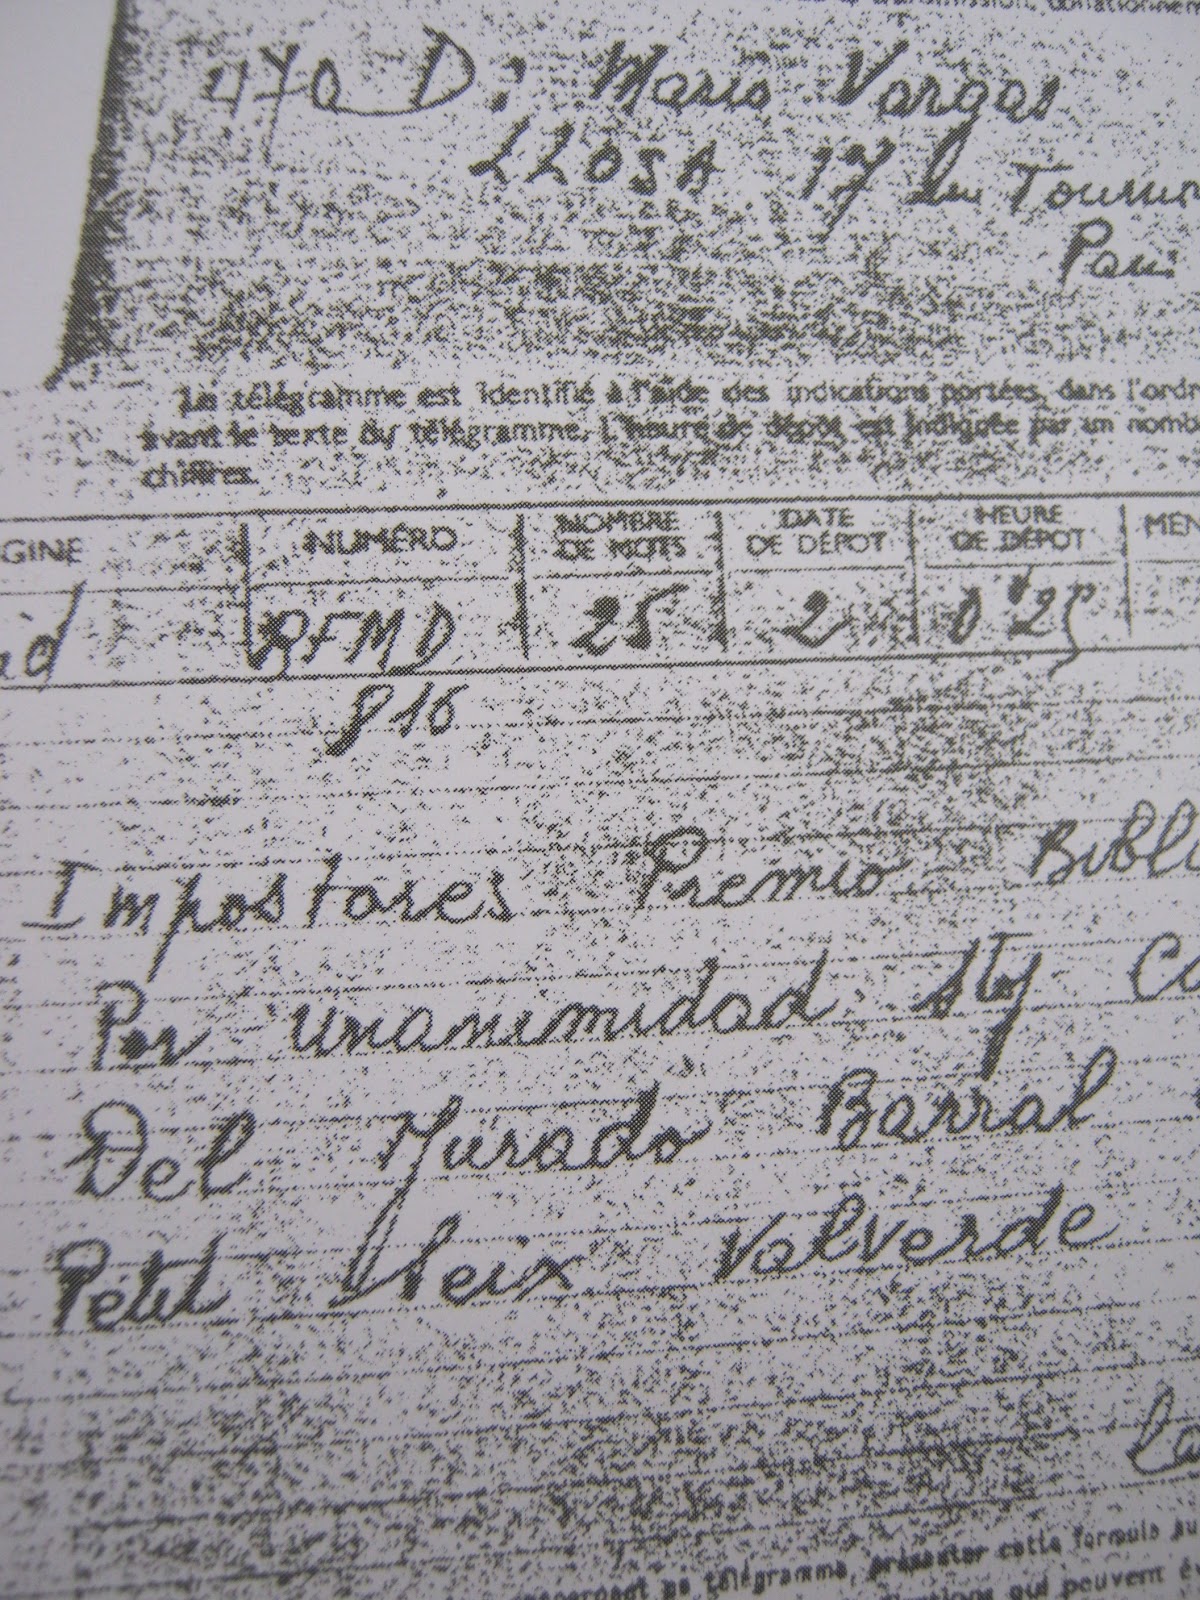 D: Mario Vargas
LLOSA 17 Tourno
Paris
Le télégramme est identifié à l'aide des indications portées, dans l'ordr
avant le texte du télégramme. L'heure de dépôt est indiquée par un nomb
chiffres.
GINE NUMÉRO NOMBRE DE MOTS DATE DE DÉPOT HEURE DE DÉPOT MEN
RFMD 25 2 0 25
816
Impostores Premio Bibli
Por unanimidad Co
Del Jurado Barral
Petit Vleix Valverde
télégramme, présenter cette formule au
qui peuvent ê